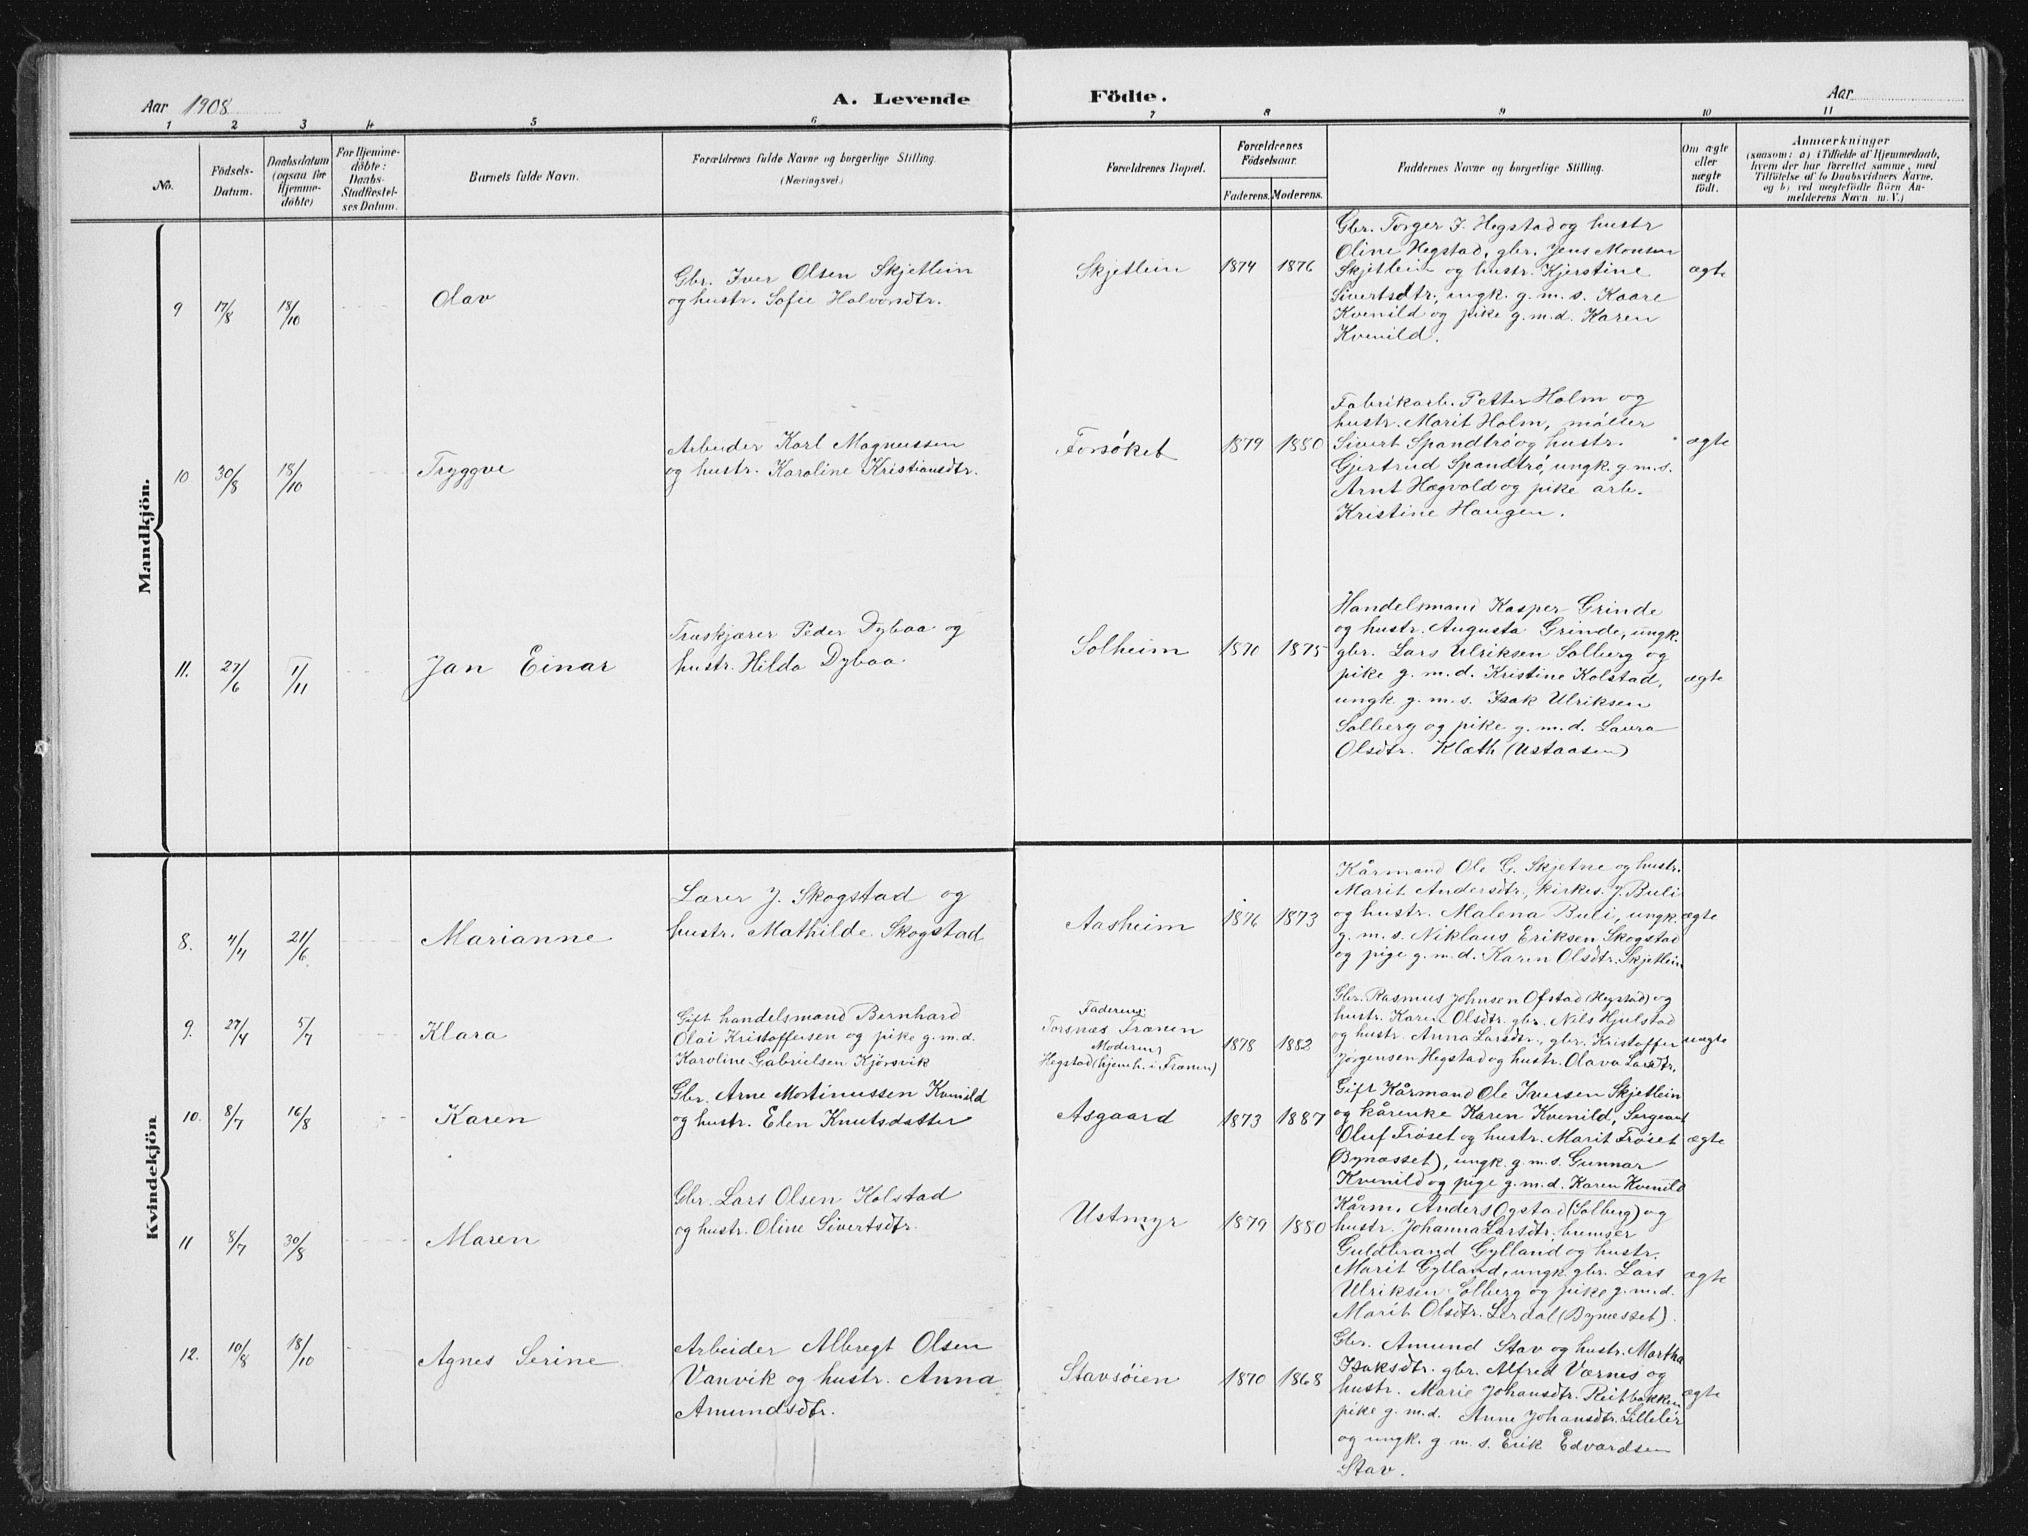 Aar 1908
A. Levende
Födte.
Aar
1 2 3 4 5 6 7 8 9 10 11
No.
Födsels-
Datum.
Daabsdatum
(ogsaa for
Hjemme-
döbte)
For Hjemme-
döbte:
Daabs-
Stadfæstel-
ses Datum.
Barnets fulde Navn.
Forældrenes fulde Navne og borgerlige Stilling.
(Næringsvei)
Forældrenes Bopæl.
Forældrenes
Födselsaar.
Faderens. Moderens.
Faddernes Navne og borgerlige Stilling.
Om ægte
eller
uægte
födt.
Anmærkninger
(saasom: a) i Tilfælde af Hjemmedaab,
hvem der har forrettet samme, med
Tilföielse af to Daabsvidners Navne.
og b) ved uægtefödte Börn An-
melderens Navn m. V.)
Mandkjön.
9 17/8 18/10
Olav
Gbr. Iver Olsen Skjetlein
og hustr. Sofie Halvorsdtr.
Skjetlein
1874 1876
Gbr. Torger J. Hegstad og hustr
Oline Hegstad, gbr. Jens Monsen
Skjetlein og hustr. Kjerstine
Sivertsdtr, ungk. g. m. s. Kaare
Kvenild og pike g. m. d. Karen
Kvenild.
ægte
10 30/8 18/10
Tryggve
Arbeider Karl Magnussen
og hustr. Karoline Kristiansdtr.
Forsøket
1879 1880
Fabrikarb. Petter Holm og
hustr. Marit Holm, møller
Sivert Spandtrø og hustr.
Gjertrud Spandtrø, ungk. g. m. s.
Arnt Hægvold og pike arb.
Kristine Haugen.
ægte
11. 27/6 1/11
Jan Einar
Træskjærer Peder Dybaa og
hustr. Hilda Dybaa.
Solheim
1870 1875
Handelsmand Kasper Grinde
og hustr. Augusta Grinde, ungk.
gbr. Lars Ulriksen Solberg og
pike g. m. d. Kristine Kolstad,
ungk. g. m. s. Isak Ulriksen
Solberg og pike g. m. d. Laura
Olsdtr. Klæth (Ustaasen)
ægte
Kvindekjön
8. 4/4 21/6
Marianne
Lærer J. Skogstad og
hustr. Mathilde Skogstad
Aasheim
1876 1873
Kårmand Ole G. Skjetne og hustr.
Marit Andersdtr, kirkes. J. Buli
og hustr. Malena Buli, ungk.
g. m. s. Niklaus Eriksen Skogstad
og pige g. m. d. Karen Olsdtr. Skjetlein
ægte
9. 27/4 5/7
Klara
Gift handelsmand Bernhard
Olai Kristoffersen og pike g. m. d.
Karoline Gabrielsen Kjörsvik
Faderens:
Torsnæs Frænen
Moderens
Hegstad (hjemh. i Frænen)
1878 1882
Gbr. Rasmus Johnsen Ofstad (Hegstad) og
hustr. Karen Olsdtr. gbr. Nils Hjulstad
og hustr. Anna Larsdtr., gbr. Kristoffer
Jørgensen Hegstad og hustr. Olava Larsdtr.
uægte
10. 8/7 16/8
Karen
Gbr. Arne Mortinussen Kvenild
og hustr. Elen Knutsdatter
Asgaard
1873 1887
Gift Kårmand Ole Iversen Skjetlein
og kårenke Karen Kvenild, Sergeant
Oluf Frøset og hustr. Marit Frøset
(Bynæsset), ungk. g. m. s. Gunnar
Kvenild og pige g. m. d. Karen Kvenild
ægte
11 8/7 30/8
Maren
Gbr. Lars Olsen Kolstad
og hustr. Oline Sivertsdtr.
Ustmyr
1879 1880
Kårm. Anders Ogstad (Solberg) og
hustr. Johanna Larsdtr, bremser
Guldbrand Gylland og hustr.
Marit Gylland, ungk. gbr. Lars
Ulriksen Solberg og pike g. m. d.
Marit Olsdtr. Lerdal (Bynæsset).
ægte
12. 10/8 18/10
Agnes Serine
Arbeider Albregt Olsen
Vanvik og hustr. Anna
Amundsdtr.
Stavsøien
1870 1868
Gbr. Amund Stav og hustr. Martha
Isaksdtr. gbr. Alfred Værnes og
hustr. Marie Johansdtr. Reitbakken
pike g. m. d. Anne Johansdtr. Lillelir
og ungk. g. m. s. Erik Edvardsen
Stav.
ægte